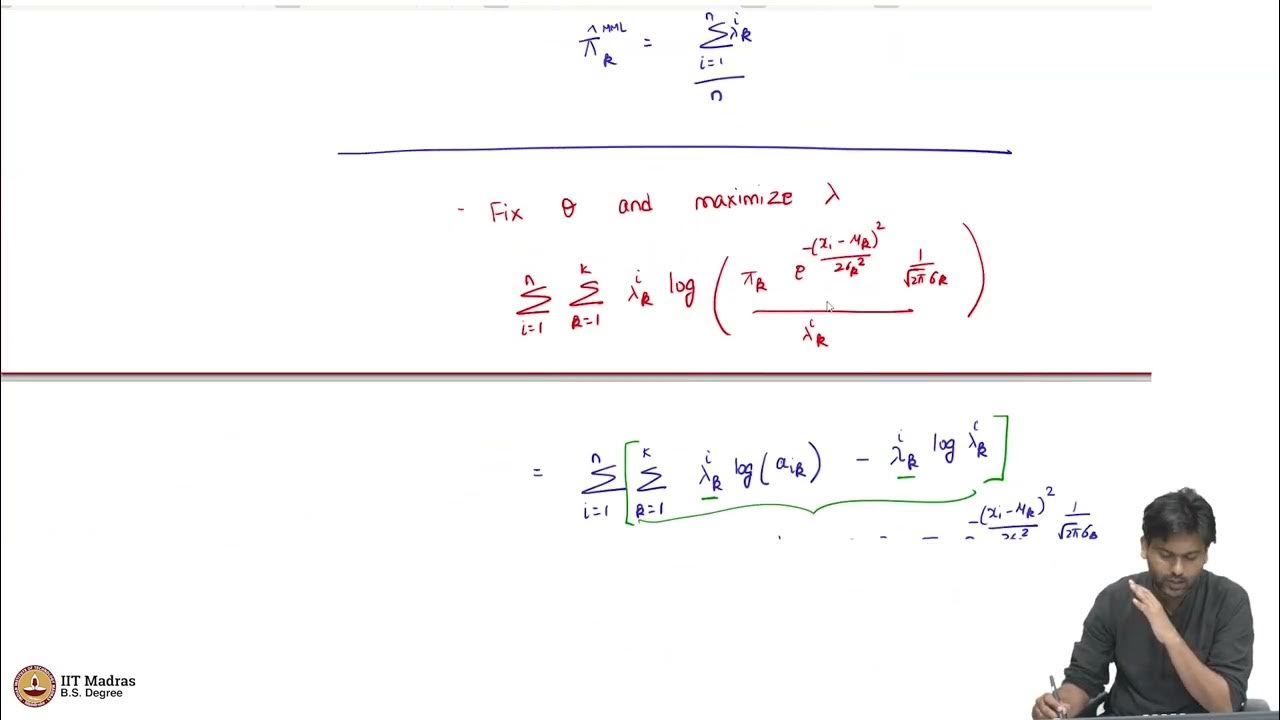 π̂ₖᴹᴹᴸ = Σᵢ₌₁ⁿ λₖⁱ / n
- Fix θ and maximize λ
Σᵢ₌₁ⁿ Σₖ₌₁ᴷ λₖⁱ log ( πₖ e^(-(xᵢ - μₖ)² / 2σₖ²) 1/(√2π σₖ) / λₖⁱ )
= Σᵢ₌₁ⁿ [ Σₖ₌₁ᴷ λₖⁱ log(aᵢₖ) - λₖⁱ log λₖⁱ ]
-(xᵢ - μₖ)² / 2σ² 1/(√2π σₖ)
IIT Madras
B.S. Degree